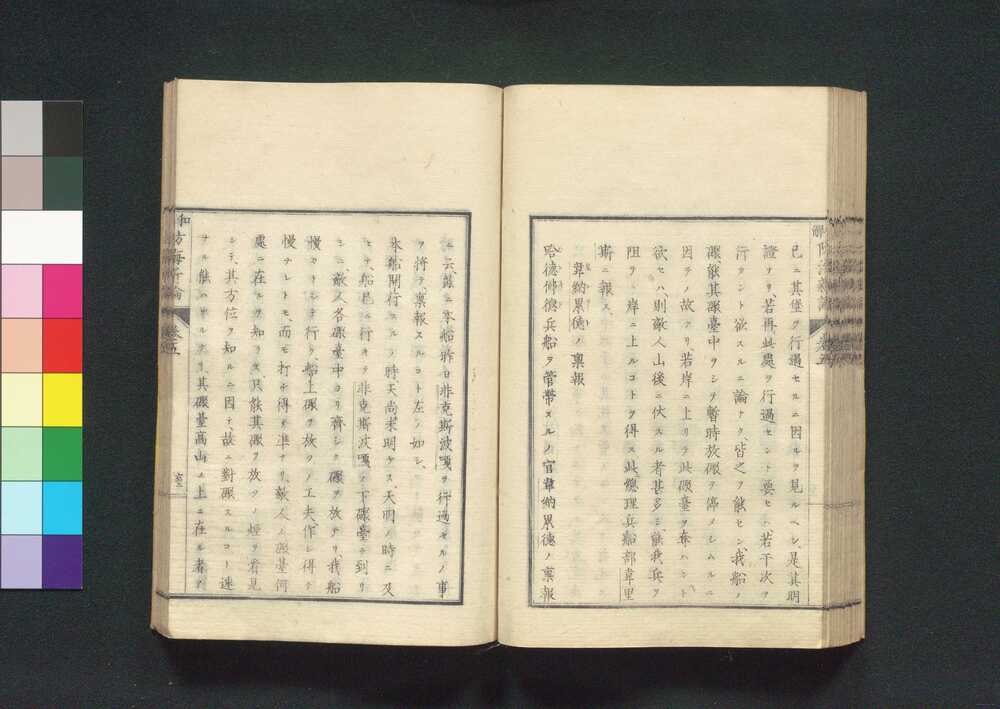 已ニ其堡ヲ行過セルニ因ルヲ見ルヘシ、是其明
證ナリ、若再此處ヲ行過セント要セハ、若干次ヲ
行ラント欲スルニ論ナク、皆之ヲ能セン、我船ノ
礟、能其礟臺中ヲシヲ暫時放礟ヲ停メシムルニ
因テノ故ナリ、若岸ニ上リテ此礟臺ヲ奪ハント
欲セハ、則敵人山後ニ伏スル者甚多シ、能我兵ヲ
阻テ、岸ニ上ルコトヲ得ス、此總理兵船部韋里
斯ニ報ス、
韋納累德ノ稟報
哈德佛德兵船ヲ管帶スルノ官韋納累德ノ稟報
ニ云、茲ニ本船昨日非克斯波嘎ヲ行過セルノ事
ヲ將テ、稟報スルコト左ノ如シ、
本船開行スルノ時、天尚未明ケス、天明ノ時ニ及
ヒテ、船已ニ行キテ非克斯波嘎ノ下礟臺ニ到リ
シニ、敵人各礟臺中ヨリ齊シク礟ヲ放テリ、我船
慢カニシテ行ク、船上礟ヲ放ツノ工夫、作シ得テ
慢ナレトモ、而モ打チ得テ準ナリ、敵人ノ礟臺何
處ニ在ルヲ知ラス、只能其礟ヲ放ツノ煙ヲ看見
シテ、其方位ヲ知ルニ因テ、故ニ對礟スルコト速
ナル能ハサルナリ、其礟臺高山ノ上ニ在ル者ア